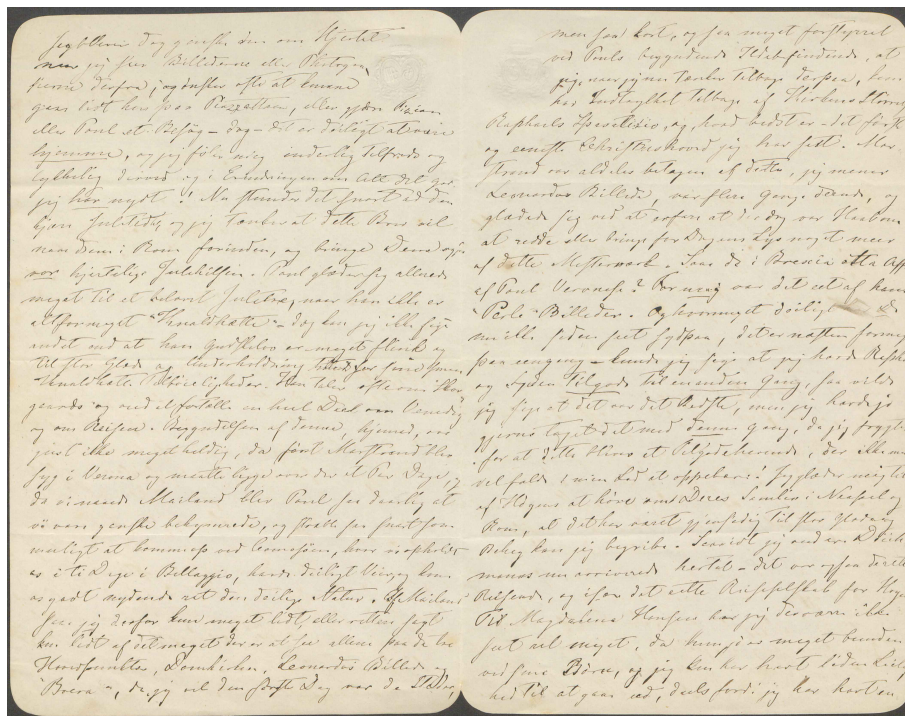 dog ganske ned om Hjertet
naar jeg seer Billederne eller Photogra
fierne derfra; jeg ønsker ofte at kunne
gaae lidt hen paa Piazzettaen, eller gjøre Tizian
eller Paul et Besøg – dog – det er deiligt at være
hjemme, og jeg føler mig inderlig tilfreds og
lykkelig derved og i Erindringen om Alt det
jeg har nydt! Nu stunder det snart ad den
kjære Juletid, og jeg tænker at dette Brev vil
naae dem i Rom forinden, og bringe Dem
vor hjertelige Julehilsen. Paul glæder sig allerede
meget til et belovet Juletræ, naar han ikke er
altformeget "Knaldhætte" – dog kan jeg ikke sige
andet end at han gudskelov er meget flink og
til stor Glæde og Underholdning for sine
"Knaldhætte". Han taler ofte om
og ved at fortælle en heel Deel om Venedig
og om Reisen. Begyndelsen af denne, hjemad, var
just ikke meget heldig, da först Marstrand blev
syg i Verona og maatte ligge over der et Par Dage, og
da vi naaede Mailand blev Paul saa daarlig at
vi vare ganske bekymrede, og stræbte saa snart som
muligt at komme op ved Comosöen, hvor vi opholdt
os i ti Dage i Bellaggio, havde deiligt Veir og kom
os godt nydende ret den deilige Natur. Af Mailand
saae jeg derfor kun meget lidt, eller rettere sagt
kun lidt af det meget der er at see allene paa de to
Hovedpunkter, Domkirken, Leonardos Billede og
"Brera", da jeg vel den første Dag var de Steder,
men saa kort, og saa meget forstyrret
ved Pauls begyndende Ildebefindende, at
jeg, naar jeg nu tænker tilbage derpaa,
har Indtrykket tilbage af Kirkens Størrelse
Raphaels Sposalizio, og, hvad bedst er – det første
og eneste Christushoved jeg har seet. Mar-
strand var aldeles betagen af dette, jeg mener
Leonardos Billede, var flere Gange derude, og
glædede sig ved at erfare at der dog var Haab om
at redde eller bringe for Dagens Lys noget meer
af dette Mesterværk. Saae De i Brescia
af Paul Veronese? For mig var det eet af hans
"Perle"-Billeder. Og hvormeget deiligt
siden seet sydpaa, det er næsten formeget
paa eengang – kunde jeg sige at jeg havde
og Syden tilgode til en anden Gang, saa vilde
jeg sige at det var det Bedste, men jeg havde jo
gjerne taget det med denne Gang, da jeg frygter
for at dette bliver et Tilgodehavende, der ikke
vel falder i min Lod at oppebære! Jeg glæder mig til
at høre om Deres Samler i Neapel og
Rom, at det har været gjensidig til stor Glæde og
Behag kan jeg begribe. Scavidt jeg veed ere
manns nu arriverede hertil – det var ogsaa
Reisende, og især det rette Reiseselskab for
Til Magdalene Hansen har jeg desværre ikke
seet ret meget, da hun jo er meget bunden
ved sine Börn, og jeg kun har havt liden
hed til at gaae ud, deels fordi jeg har havt en